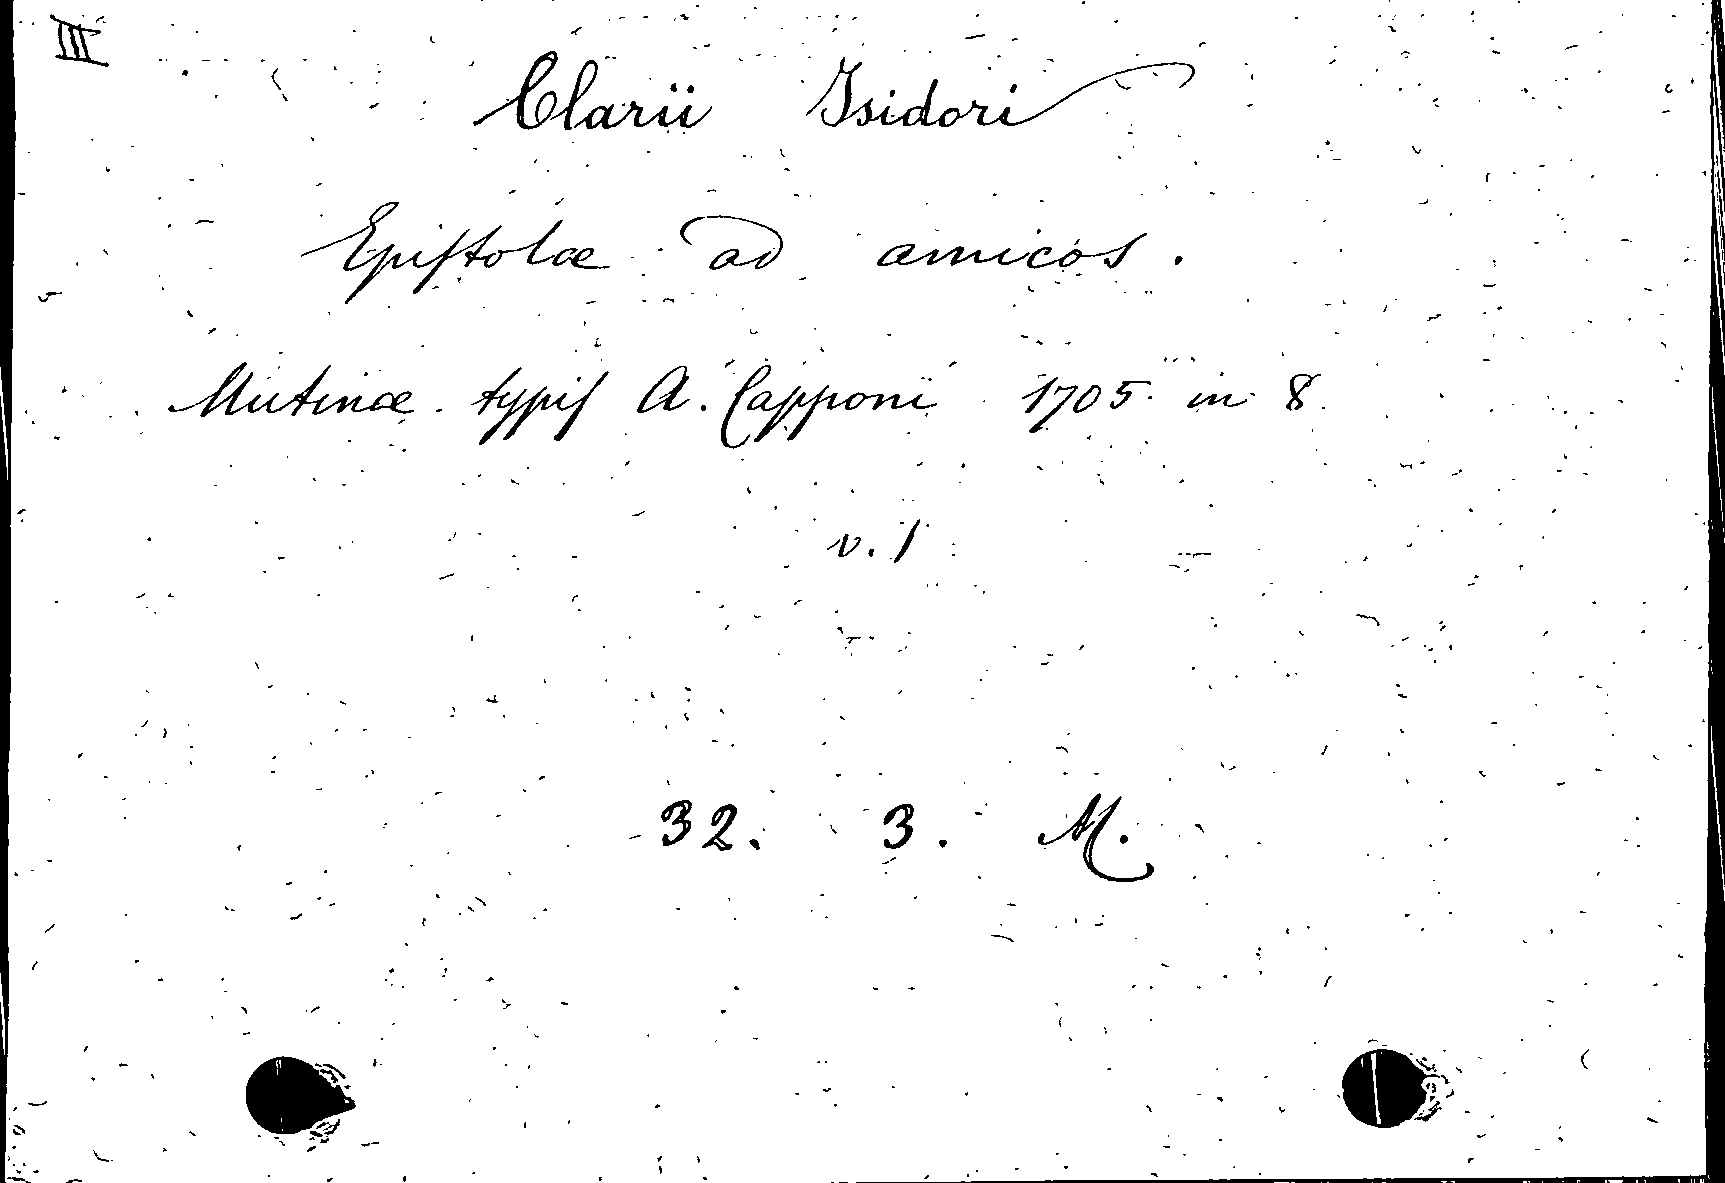 III
Clarii Isidori
Epistolæ ad amicos.
Mutinæ typis A. Capponi 1705 in 8
v. 1
32. 3. M.